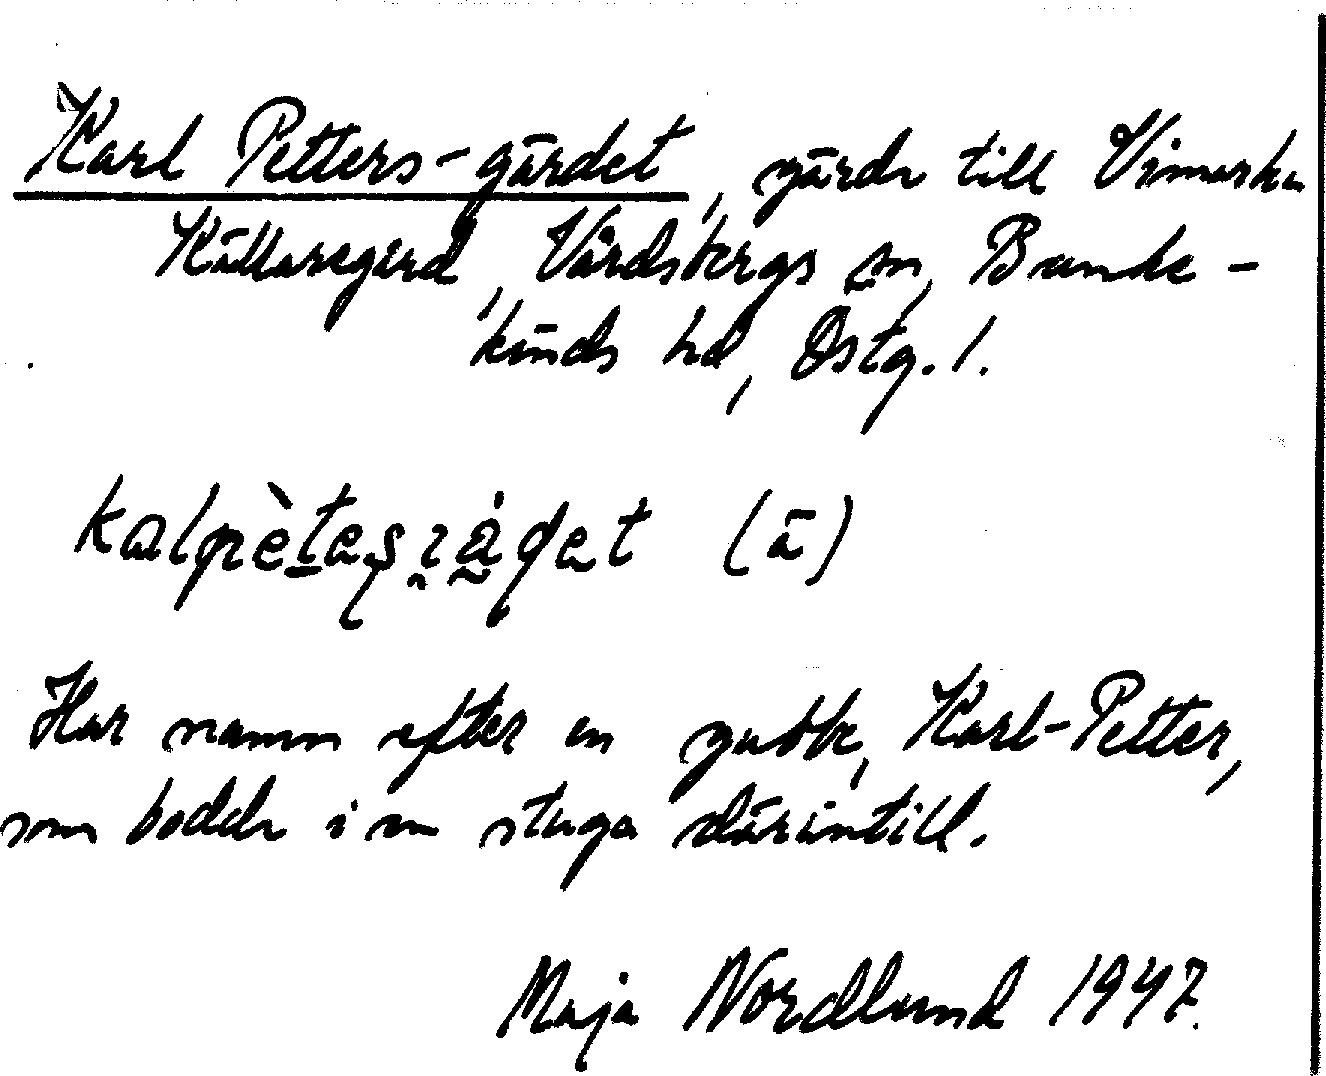 Karl Petters-gärdet, gärde till Vimarka
Källaregård, Vårdsbergs sn, Banke-
kinds hd, Östg. l.
(ā)
Har namn efter en gubbe, Karl-Petter,
som bodde i en stuga därintill.
Maja Nordlund 1947.